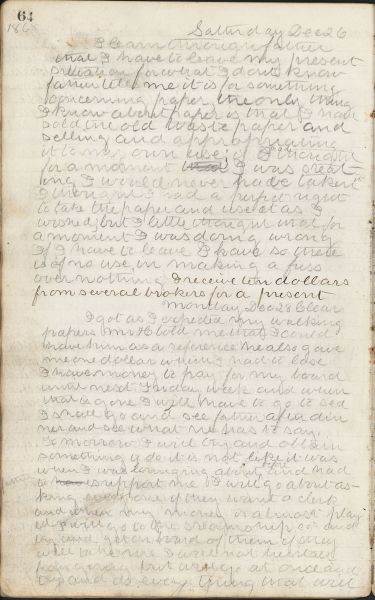 64
186
Saturday Dec 26
I learn through father
that I have to leave my present
situation for what I don't know
father tells me it is for something
concerning paper the only thing
I know about paper is that I have
sold the old waste paper and
selling and appropriating
it to my own use; if I thought
for a moment I was steal-
ing I would never have taken it
I thought I had a perfect right
to take the paper and use it as I
wished; but I little thought that for
a moment I was doing wrong
If I have to leave I have so there
is of no use in making a fuss
over nothing I receive ten dollars
from several brokers for a present
Monday Dec 28 Clear
I got as I expected my walking
papers Mr H told me that I could
have him as a reference he also gave
me one dollar which I had to
I have money to pay for my board
until next Friday week and when
that is gone I will have to go to bed
I shall go and see father after din
ner and see what he has to say.
To morrow I will try and obtain
something to do it is not like it was
when I was lounging about and had
to support me I will go about as-
king every one if they want a clerk
and when my money is almost play
ed I will go to the steamship co and
try and get on board of them if they
will take me I will not hesitate
but will go at once and
try and do every thing that will